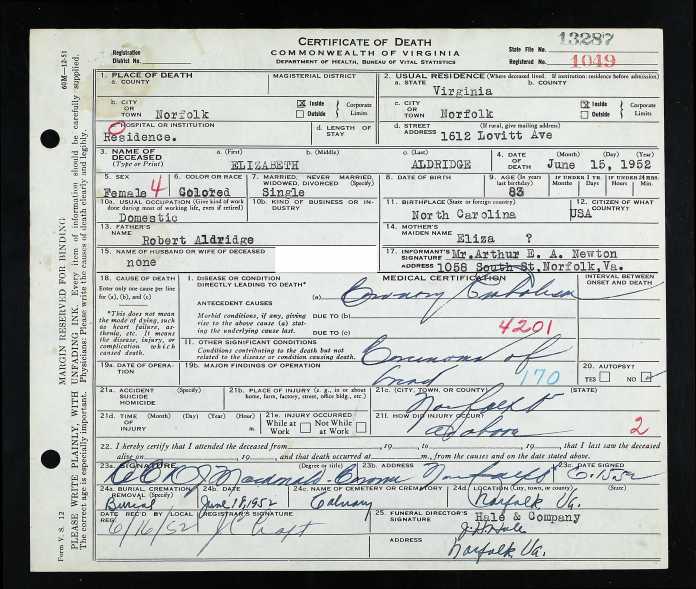 CERTIFICATE OF DEATH
COMMONWEALTH OF VIRGINIA
DEPARTMENT OF HEALTH, BUREAU OF VITAL STATISTICS
Registration District No.
State File No. 13287
Registered No. 1049
60M—12-51
1. PLACE OF DEATH
a. COUNTY
MAGISTERIAL DISTRICT
2. USUAL RESIDENCE (Where deceased lived. If institution: residence before admission)
a. STATE
b. COUNTY
Virginia
b. CITY OR TOWN Norfolk
Inside Outside Corporate Limits
c. CITY OR TOWN Norfolk
Inside Outside Corporate Limits
HOSPITAL OR INSTITUTION
Residence.
d. LENGTH OF STAY
d. STREET ADDRESS (If rural, give mailing address)
1612 Lovitt Ave
3. NAME OF DECEASED (Type or Print)
a. (First) b. (Middle) c. (Last)
ELIZABETH ALDRIDGE
4. DATE OF DEATH (Month) (Day) (Year)
June 15, 1952
5. SEX
Female 4
6. COLOR OR RACE
Colored
7. MARRIED, NEVER MARRIED, WIDOWED, DIVORCED (Specify)
Single
8. DATE OF BIRTH
9. AGE (In years last birthday)
83
IF UNDER 1 YR. Months Days
IF UNDER 24 HRS. Hours Min.
10a. USUAL OCCUPATION (Give kind of work done during most of working life, even if retired)
Domestic
10b. KIND OF BUSINESS OR INDUSTRY
11. BIRTHPLACE (State or foreign country)
North Carolina
12. CITIZEN OF WHAT COUNTRY?
USA
13. FATHER'S NAME
Robert Aldridge
14. MOTHER'S MAIDEN NAME
Eliza ?
15. NAME OF HUSBAND OR WIFE OF DECEASED
none
17. INFORMANT'S SIGNATURE Mr. Arthur E. A. Newton
17. ADDRESS 1058 South St, Norfolk, Va.
18. CAUSE OF DEATH
Enter only one cause per line for (a), (b), and (c)
*This does not mean the mode of dying, such as heart failure, asthenia, etc. It means the disease, injury, or complication which caused death.
MEDICAL CERTIFICATION
INTERVAL BETWEEN ONSET AND DEATH
I. DISEASE OR CONDITION DIRECTLY LEADING TO DEATH*
(a) Coronary Embolism
ANTECEDENT CAUSES
Morbid conditions, if any, giving rise to the above cause (a) stating the underlying cause last.
DUE TO (b)
DUE TO (c)
4201
II. OTHER SIGNIFICANT CONDITIONS
Conditions contributing to the death but not related to the disease or condition causing death.
Carcinoma of
170
19a. DATE OF OPERATION
19b. MAJOR FINDINGS OF OPERATION
20. AUTOPSY?
YES NO
21a. ACCIDENT SUICIDE HOMICIDE
21b. PLACE OF INJURY (e.g., in or about home, farm, factory, street, office bldg., etc.)
21c. (CITY, TOWN, OR COUNTY) (STATE)
Norfolk
21d. TIME OF INJURY (Month) (Day) (Year) (Hour)
21e. INJURY OCCURRED
While at Work Not While at Work
21f. HOW DID INJURY OCCUR?
2
22. I hereby certify that I attended the deceased from , 19 , to , 19 , that I last saw the deceased
alive on , 19 , and that death occurred at m., from the causes and on the date stated above.
23a. SIGNATURE (Degree or title)
Macdonald Coroner
23b. ADDRESS
Norfolk
23c. DATE SIGNED
6-15-52
24a. BURIAL, CREMATION, REMOVAL (Specify)
Burial
24b. DATE
June 18, 1952
24c. NAME OF CEMETERY OR CREMATORY
Calvary
24d. LOCATION (City, town, or county) (State)
Norfolk Va.
DATE REC'D BY LOCAL REG.
6/16/52
REGISTRAR'S SIGNATURE
25. FUNERAL DIRECTOR'S SIGNATURE
ADDRESS
Hale & Company
J. H. Hale
Norfolk Va.
Form V. S. 12
MARGIN RESERVED FOR BINDING
PLEASE WRITE PLAINLY, WITH UNFADING INK. Every item of information should be carefully supplied.
The correct age is especially important. Physicians: Please write the causes of death clearly and legibly.